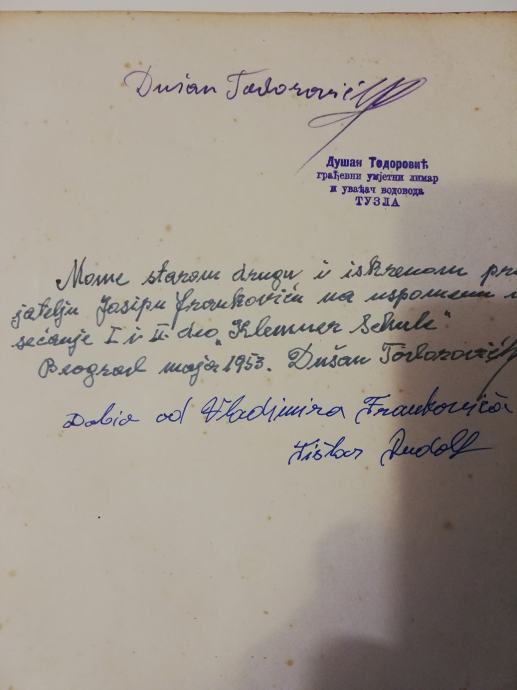 Dušan Todorović
Душан Тодоровић
грађевни умјетни лимар
и увађач водовода
ТУЗЛА
Mome starom drugu i iskrenom pri
jatelju Josipu Frankoviću na uspomenu
sećanje I i II deo „Klempner Schule"
Beograd maja 1953. Dušan Todorović
Dobio od Vladimira Frankovića
Rudolf